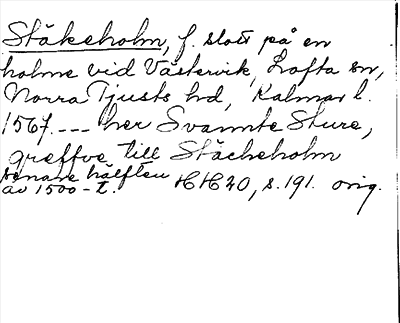 Stäkeholm, f. slott på en
holme vid Västervik, Lofta sn,
Norra Tjusts hd, Kalmar l.
1567. --- her Svannte Sture,
greffve till Stächeholm
senare hälften
av 1500-t. HH 20, s. 191. orig.